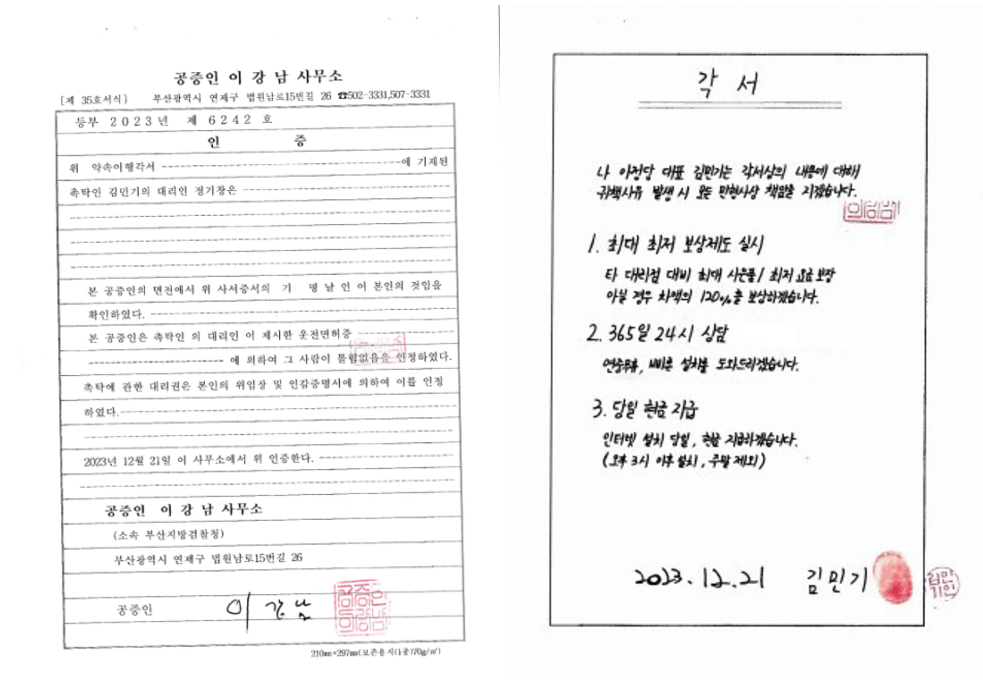 공증인 이 강 남 사무소
[제 35호서식] 부산광역시 연제구 법원남로15번길 26 ☎502-3331,507-3331
등부 2 0 2 3 년 제 6 2 4 2 호
인 증
위 약속이행각서 에 기재된
촉탁인 김민기의 대리인 정기창은
본 공증인의 면전에서 위 사서증서의 기 명 날 인 이 본인의 것임을
확인하였다.
본 공증인은 촉탁인 의 대리인 이 제시한 운전면허증
에 의하여 그 사람이 틀림없음을 인정하였다.
촉탁에 관한 대리권은 본인의 위임장 및 인감증명서에 의하여 이를 인정
하였다.
2023년 12월 21일 이 사무소에서 위 인증한다.
공증인 이 강 남 사무소
(소속 부산지방검찰청)
부산광역시 연제구 법원남로15번길 26
공증인 이 강 남
210㎜×297㎜(보존용지(1종)70g/㎡)
각 서
나 아정당 대표 김민기는 각서상의 내용에 대해
귀책사유 발생 시 모든 민형사상 책임을 지겠습니다.
1. 최대 최저 보상제도 실시
타 대리점 대비 최대 사은품/ 최저 요금 보장
아닐 경우 차액의 120%를 보상하겠습니다.
2. 365일 24시 상담
연중무휴, 빠른 설치를 도와드리겠습니다.
3. 당일 현금 지급
인터넷 설치 당일, 현금 지급하겠습니다.
(오후 3시 이후 설치, 주말 제외)
2023. 12. 21 김민기
김민기인